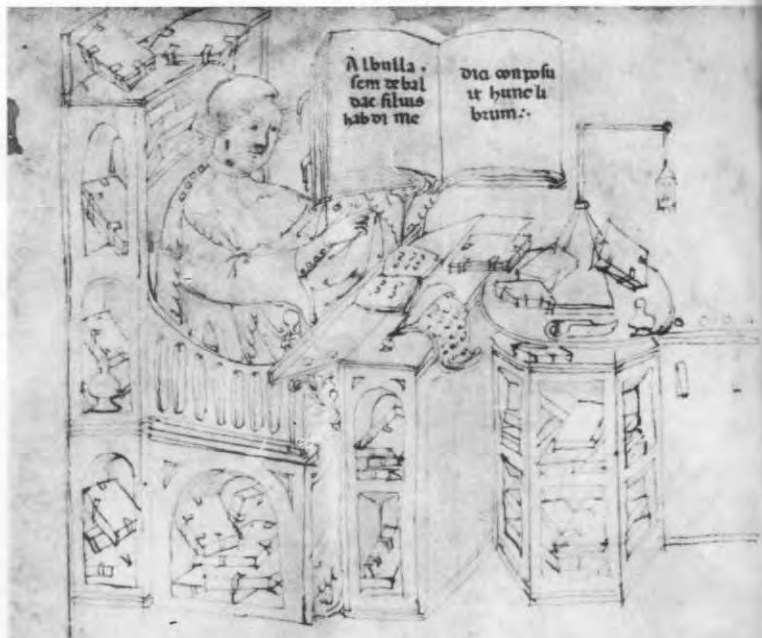 Albulla.
sem de bal
dac filius
habdi me
dici conposu
it hunc li
brum.